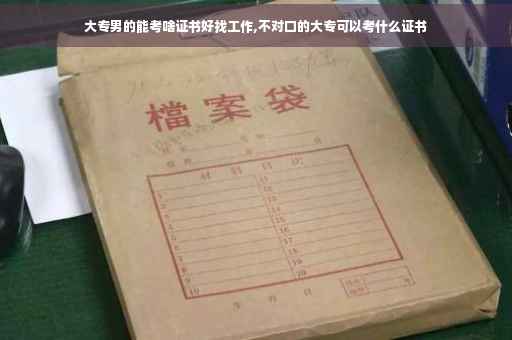 大专男的能考啥证书好找工作,不对口的大专可以考什么证书
檔案袋
材料目次
1 11
2 12
3 13
4 14
5 15
6 16
7 17
8 18
9 19
10 20
年 月 日